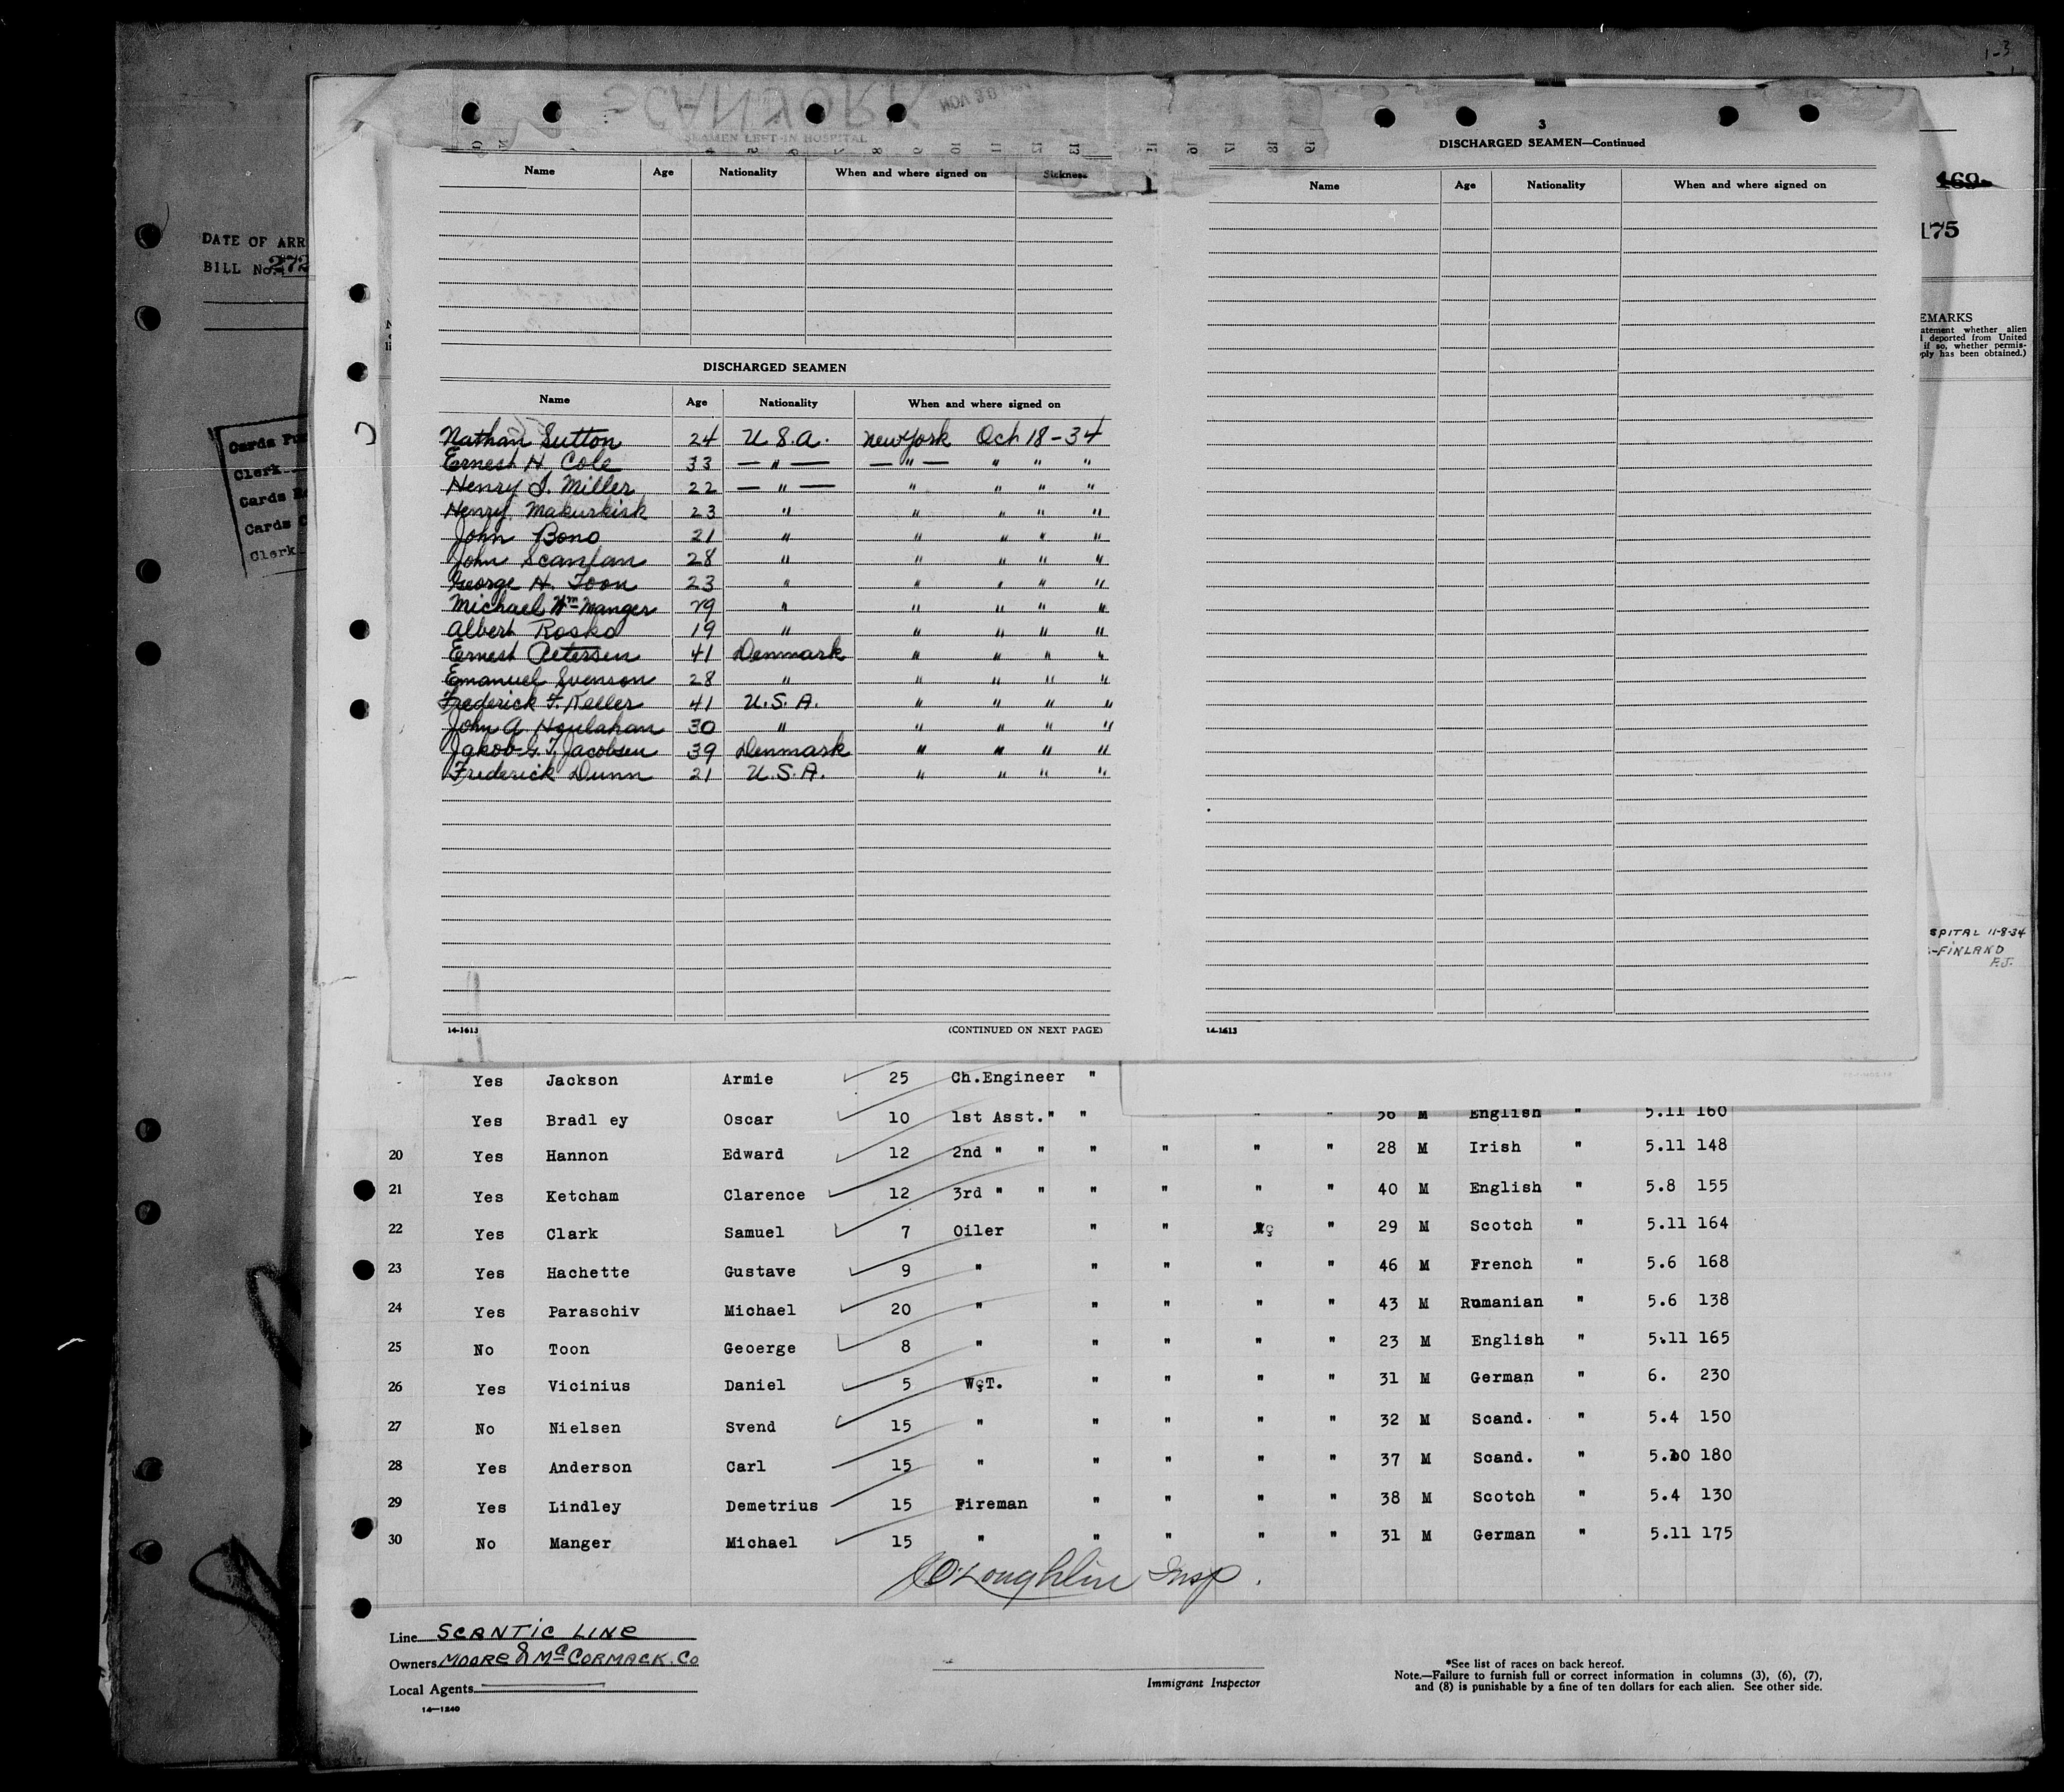 1-3
SCANYORK
NOV 30
SEAMEN LEFT IN HOSPITAL
Name Age Nationality When and where signed on Sickness
DISCHARGED SEAMEN
Name Age Nationality When and where signed on
Nathan Sutton 24 U.S.A. New York Oct 18-34
Ernest H. Cole 33 — " — — " — " " "
Henry J. Miller 22 — " — " " " "
Henry Makurkisk 23 " " " " "
John Bono 21 " " " " "
John Scanlan 28 " " " " "
George H. Toon 23 " " " " "
Michael Wm Manger 29 " " " " "
Albert Rosko 19 " " " " "
Ernest Petersen 41 Denmark " " " "
Emanuel Svenson 28 " " " " "
Frederick F. Keller 41 U.S.A. " " " "
John A. Houlahan 30 " " " " "
Jakob G. T. Jacobsen 39 Denmark " " " "
Frederick Dunn 21 U.S.A. " " " "
14-1613 (CONTINUED ON NEXT PAGE)
3
DISCHARGED SEAMEN—Continued
Name Age Nationality When and where signed on
14-1613
169
175
EMARKS
atement whether alien
deported from United
if so, whether permis-
ply has been obtained.)
SPITAL 11-8-34
-FINLAND
P.J.
DATE OF ARR
BILL No. 272
Cards Pu
Clerk
Cards
Cards C
Clerk
Yes Jackson Armie 25 Ch.Engineer "
Yes Bradl ey Oscar 10 1st Asst." " " " " 36 M English " 5.11 160
20 Yes Hannon Edward 12 2nd " " " " " " 28 M Irish " 5.11 148
21 Yes Ketcham Clarence 12 3rd " " " " " " 40 M English " 5.8 155
22 Yes Clark Samuel 7 Oiler " " " 29 M Scotch " 5.11 164
23 Yes Hachette Gustave 9 " " " " " 46 M French " 5.6 168
24 Yes Paraschiv Michael 20 " " " " " 43 M Rumanian " 5.6 138
25 No Toon Geoerge 8 " " " " " 23 M English " 5.11 165
26 Yes Vicinius Daniel 5 W.T. " " " " 31 M German " 6. 230
27 No Nielsen Svend 15 " " " " " 32 M Scand. " 5.4 150
28 Yes Anderson Carl 15 " " " " " 37 M Scand. " 5.10 180
29 Yes Lindley Demetrius 15 Fireman " " " " 38 M Scotch " 5.4 130
30 No Manger Michael 15 " " " " " 31 M German " 5.11 175
O'Loughlin Insp.
Line SCANTIC LINE
Owners MOORE & McCORMACK. Co
Local Agents
14—1240
Immigrant Inspector
*See list of races on back hereof.
Note.—Failure to furnish full or correct information in columns (3), (6), (7),
and (8) is punishable by a fine of ten dollars for each alien. See other side.